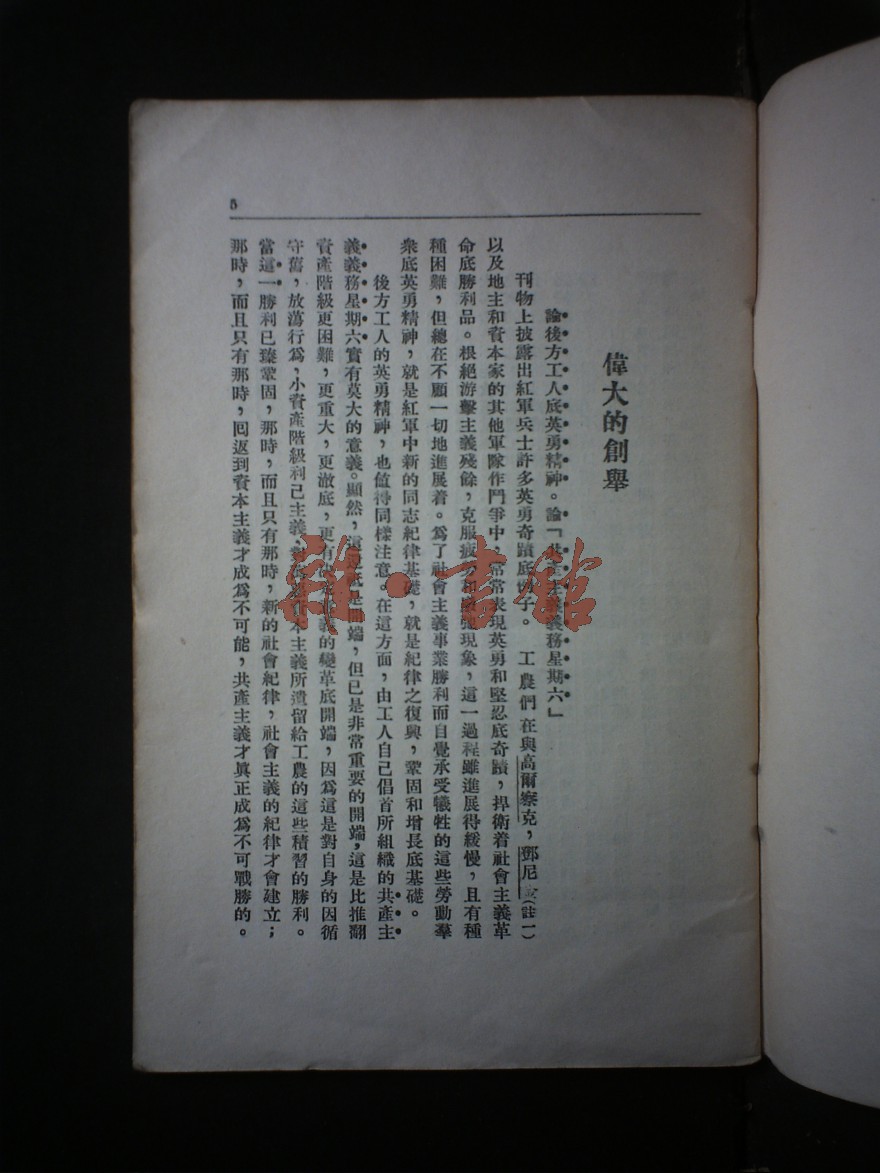 偉大的創舉
論後方工人底英勇精神。論「共產主義義務星期六」
刊物上披露出紅軍兵士許多英勇奇蹟底例子。工農們在與高爾察克,鄧尼(註一)
以及地主和資本家的其他軍隊作鬥爭中,常常表現英勇和堅忍底奇蹟,捍衛着社會主義革
命底勝利品。根絕游擊主義殘餘,克服疲勞和現象,這一過程雖進展得緩慢,且有種
種困難,但總在不顧一切地進展着。爲了社會主義事業勝利而自覺承受犧牲的這些勞動羣
衆底英勇精神,就是紅軍中新的同志紀律基礎,就是紀律之復興,鞏固和增長底基礎。
後方工人的英勇精神,也值得同樣注意。在這方面,由工人自己倡首所組織的共產主
義義務星期六實有莫大的意義。顯然,這還祇是開端,但已是非常重要的開端,這是比推翻
資產階級更困難,更重大,更澈底,更有決定意義的變革底開端,因爲這是對自身的因循
守舊,放蕩行爲,小資產階級利己主義,對萬惡資本主義所遺留給工農的這些積習的勝利。
當這一勝利已臻鞏固,那時,而且只有那時,新的社會紀律,社會主義的紀律才會建立;
那時,而且只有那時,囘返到資本主義才成爲不可能,共產主義才眞正成爲不可戰勝的。
5
雜·書館